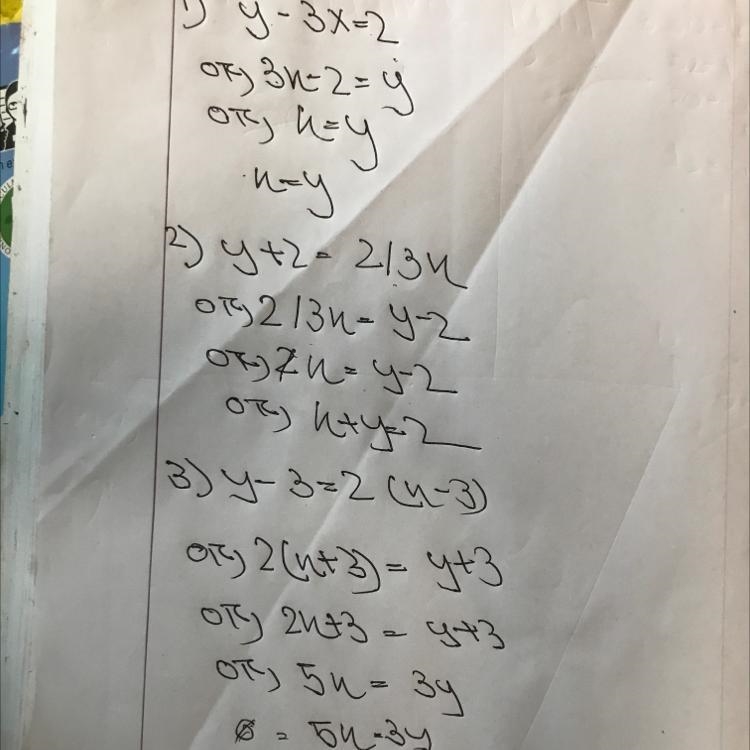 1) y - 3x = 2
or, 3x - 2 = y
or, x = y
x = y
2) y + 2 = 2/3x
or, 2/3x = y - 2
or, 2x = y - 2
or, x + y = 2
3) y - 3 = 2 (x - 3)
or, 2(x + 3) = y + 3
or, 2x + 3 = y + 3
or, 5x = 3y
= 5x - 3y